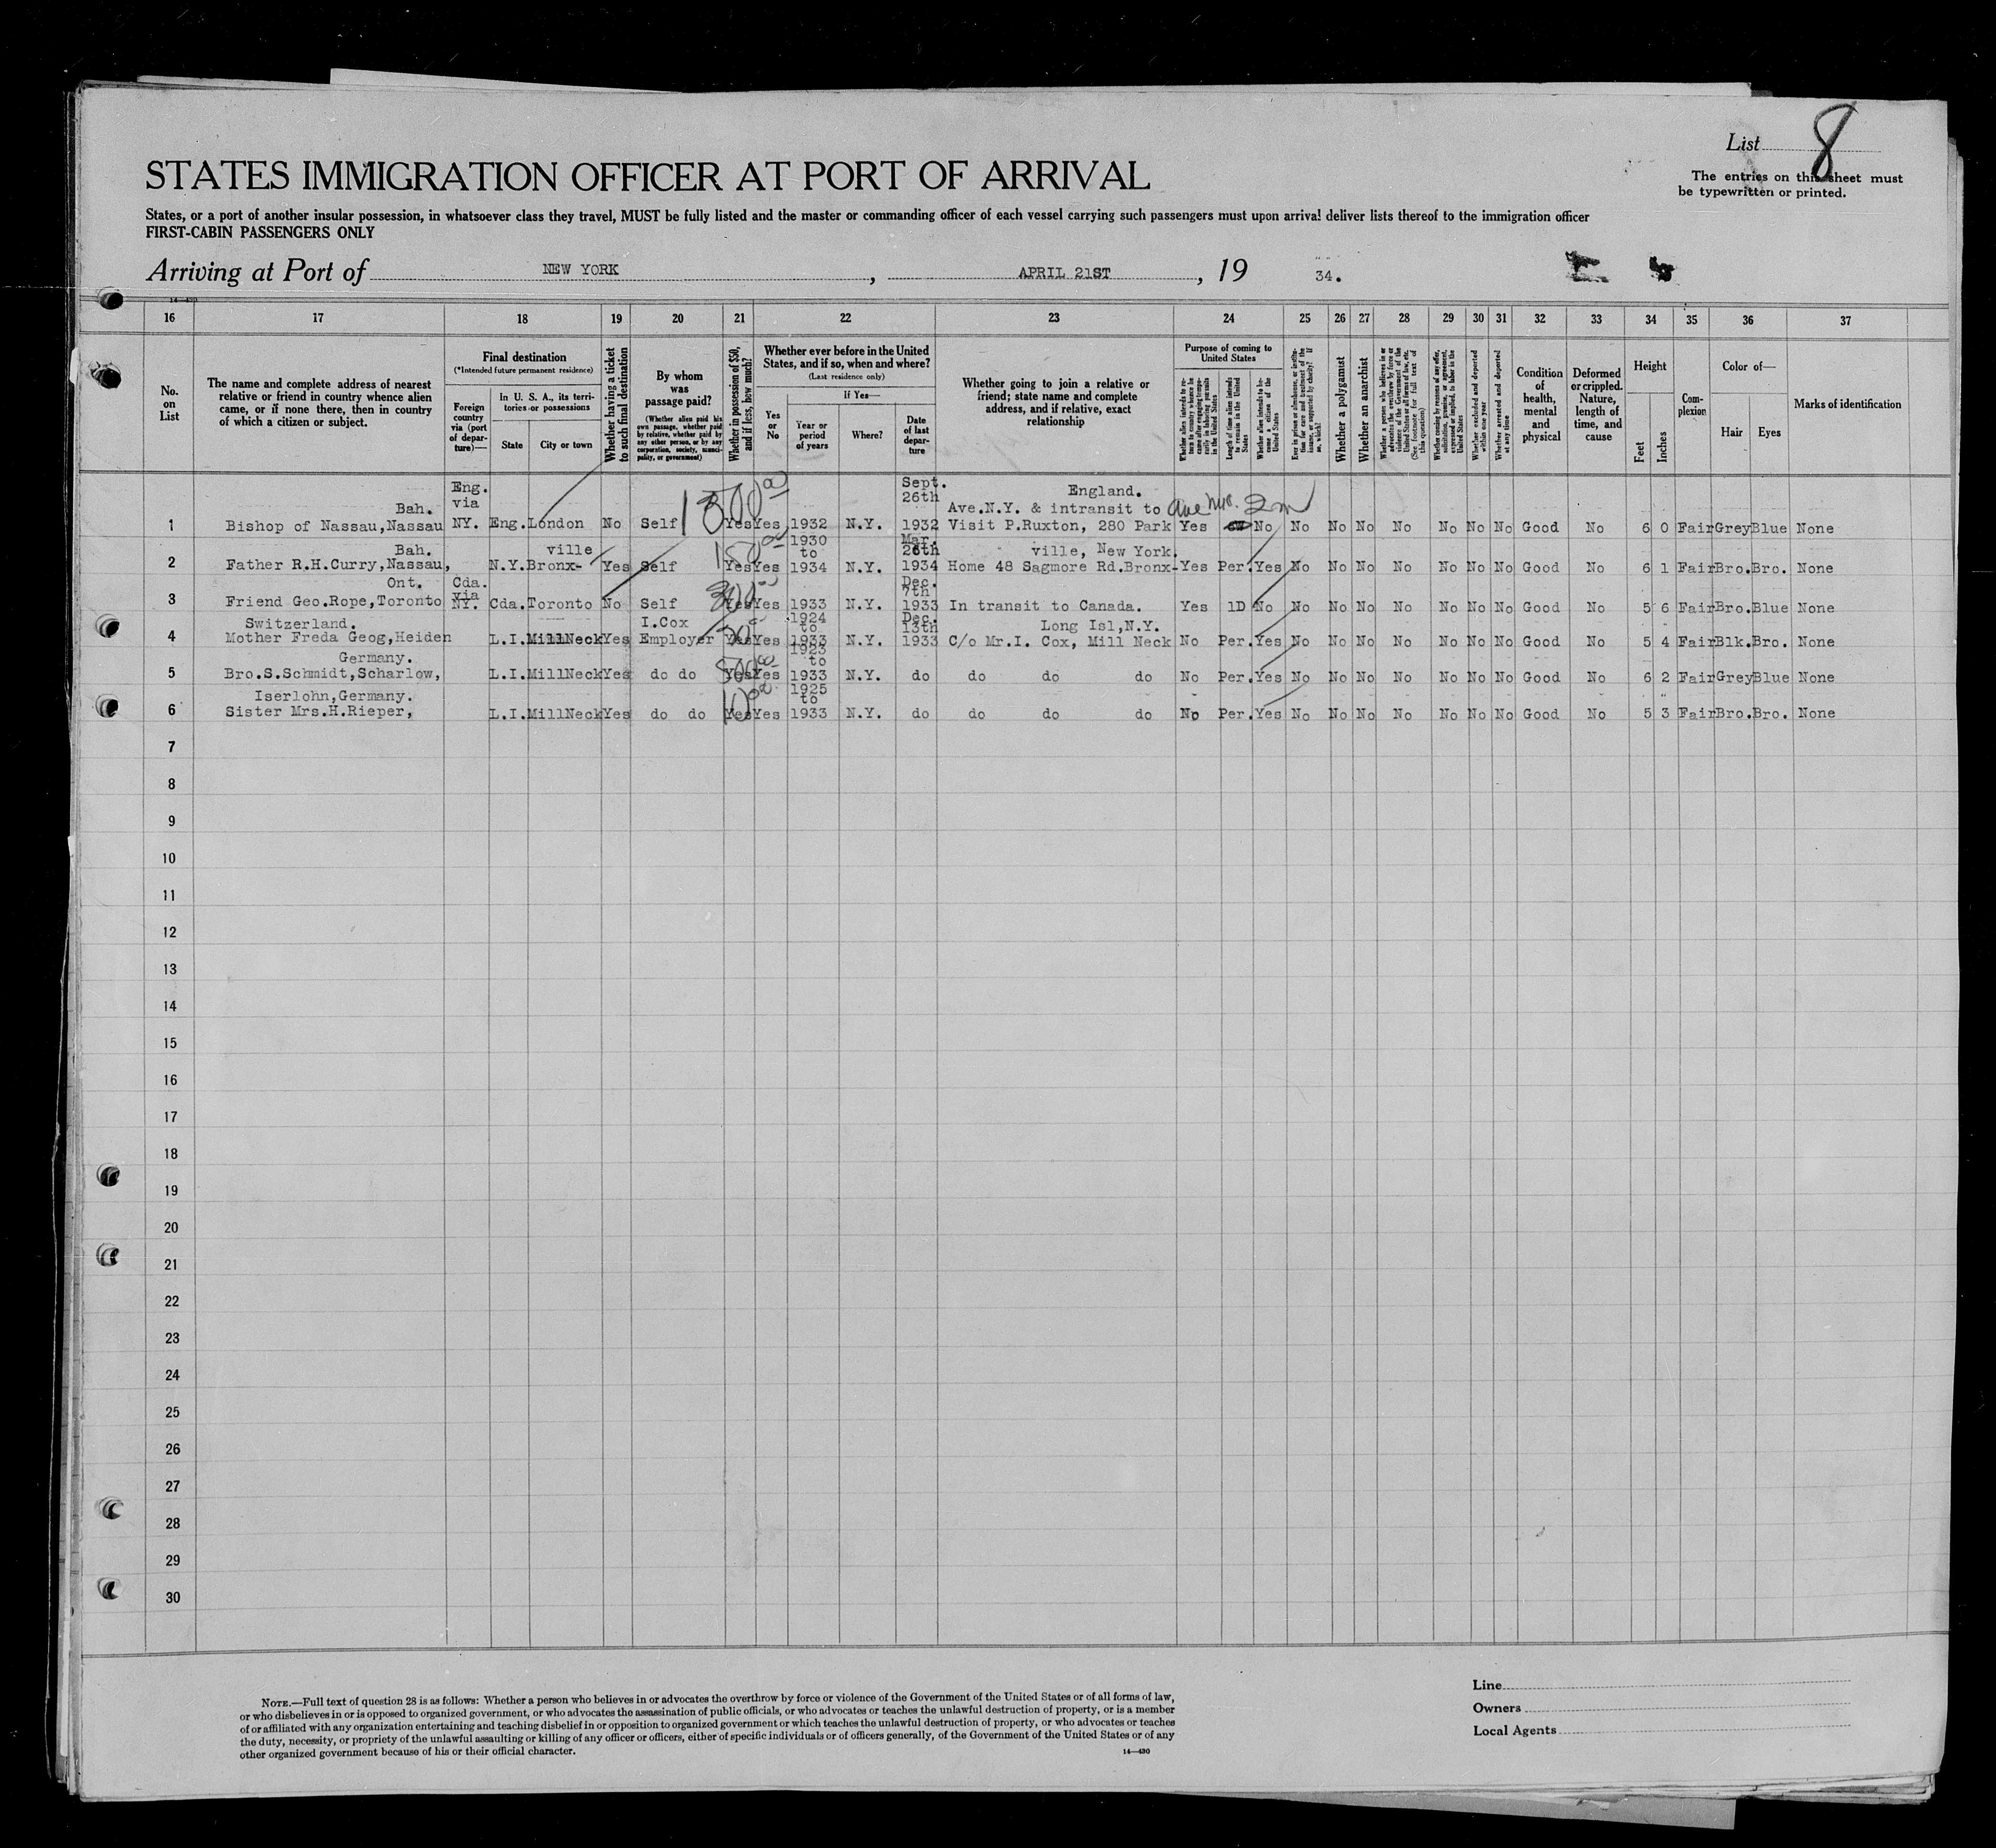 List 8
The entries on this sheet must
be typewritten or printed.
STATES IMMIGRATION OFFICER AT PORT OF ARRIVAL
States, or a port of another insular possession, in whatsoever class they travel, MUST be fully listed and the master or commanding officer of each vessel carrying such passengers must upon arrival deliver lists thereof to the immigration officer
FIRST-CABIN PASSENGERS ONLY
Arriving at Port of NEW YORK, APRIL 21ST, 19 34.
14—430
16 17 18 19 20 21 22 23 24 25 26 27 28 29 30 31 32 33 34 35 36 37
No. on List
The name and complete address of nearest relative or friend in country whence alien came, or if none there, then in country of which a citizen or subject.
Final destination
(*Intended future permanent residence)
Foreign country via (port of departure)—
In U. S. A., its territories or possessions
State
City or town
Whether having a ticket to such final destination
By whom was passage paid?
(Whether alien paid his own passage, whether paid by relative, whether paid by any other person, or by any corporation, society, municipality, or government)
Whether in possession of $50, and if less, how much?
Whether ever before in the United States, and if so, when and where?
(Last residence only)
Yes or No
If Yes—
Year or period of years
Where?
Date of last departure
Whether going to join a relative or friend; state name and complete address, and if relative, exact relationship
Purpose of coming to United States
Length of time alien intends to remain in the United States
Whether alien intends to become a citizen of the United States
Whether a polygamist
Whether an anarchist
Whether excluded and deported within one year
Whether arrested and deported at any time
Condition of health, mental and physical
Deformed or crippled. Nature, length of time, and cause
Height
Feet
Inches
Complexion
Color of—
Hair
Eyes
Marks of identification
Bah. Eng. via Sept. 26th England.
Ave.N.Y. & intransit to
1 Bishop of Nassau,Nassau NY. Eng. London No Self 1300 00 Yes Yes 1932 N.Y. 1932 Visit P.Ruxton, 280 Park Yes No No No No No No No No Good No 6 0 Fair Grey Blue None
Bah. ville 1930 to Mar. 26th ville, New York.
2 Father R.H.Curry,Nassau, N.Y. Bronx- Yes Self 150 00 Yes Yes 1934 N.Y. 1934 Home 48 Sagmore Rd.Bronx- Yes Per. Yes No No No No No No No Good No 6 1 Fair Bro. Bro. None
Ont. Cda. via Dec. 7th
3 Friend Geo.Rope,Toronto NY. Cda. Toronto No Self 300 Yes Yes 1933 N.Y. 1933 In transit to Canada. Yes 1D No No No No No No No No Good No 5 6 Fair Bro. Blue None
Switzerland. I.Cox 1924 to Dec. 13th Long Isl,N.Y.
4 Mother Freda Geog,Heiden L.I. MillNeck Yes Employer Yes Yes 1933 N.Y. 1933 C/o Mr.I. Cox, Mill Neck No Per. Yes No No No No No No No Good No 5 4 Fair Blk. Bro. None
Germany. 1923 to
5 Bro.S.Schmidt,Scharlow, L.I. MillNeck Yes do do 500 00 Yes Yes 1933 N.Y. do do do do No Per. Yes No No No No No No No Good No 6 2 Fair Grey Blue None
Iserlohn,Germany. 1925 to
6 Sister Mrs.H.Rieper, L.I. MillNeck Yes do do Yes Yes 1933 N.Y. do do do do No Per. Yes No No No No No No No Good No 5 3 Fair Bro. Bro. None
7
8
9
10
11
12
13
14
15
16
17
18
19
20
21
22
23
24
25
26
27
28
29
30
NOTE.—Full text of question 28 is as follows: Whether a person who believes in or advocates the overthrow by force or violence of the Government of the United States or of all forms of law,
or who disbelieves in or is opposed to organized government, or who advocates the assassination of public officials, or who advocates or teaches the unlawful destruction of property, or is a member
of or affiliated with any organization entertaining and teaching disbelief in or opposition to organized government or which teaches the unlawful destruction of property, or who advocates or teaches
the duty, necessity, or propriety of the unlawful assaulting or killing of any officer or officers, either of specific individuals or of officers generally, of the Government of the United States or of any
other organized government because of his or their official character.
14—430
Line
Owners
Local Agents